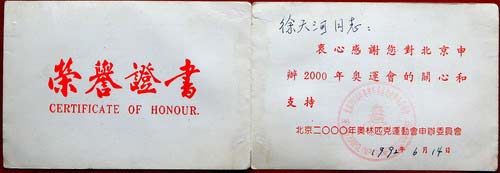 榮譽證書
CERTIFICATE OF HONOUR.
徐天河同志：
衷心感謝您對北京申
辦2000年奥運會的關心和
支持
北京二〇〇〇年奥林匹克運動會申辦委員會
1992年6月14日